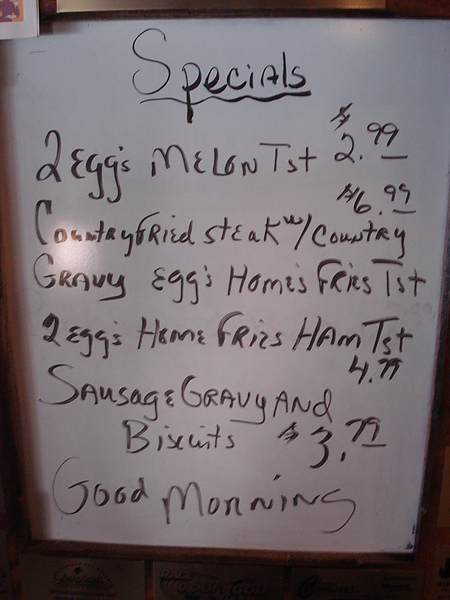 Specials
2 Egg's Melon Tst $2.99
$6.99
Country Fried Steak w/ Country
Gravy Egg's Home's Fries Tst
2 Egg's Home Fries Ham Tst
4.99
Sausage Gravy And
Biscuits $3.79
Good Morning